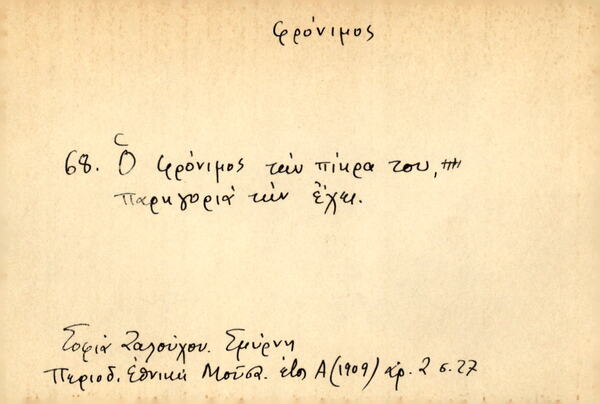 φρόνιμος
68. Ὁ φρόνιμος τὴν πίκρα του,
παρηγοριὰ τὴν ἔχει.
Σοφία Σαλούχου. Σμύρνη
Περιοδ. Ἐθνικὴ Μοῦσα. ἔτος Α (1909) ἀρ. 2 σ. 27